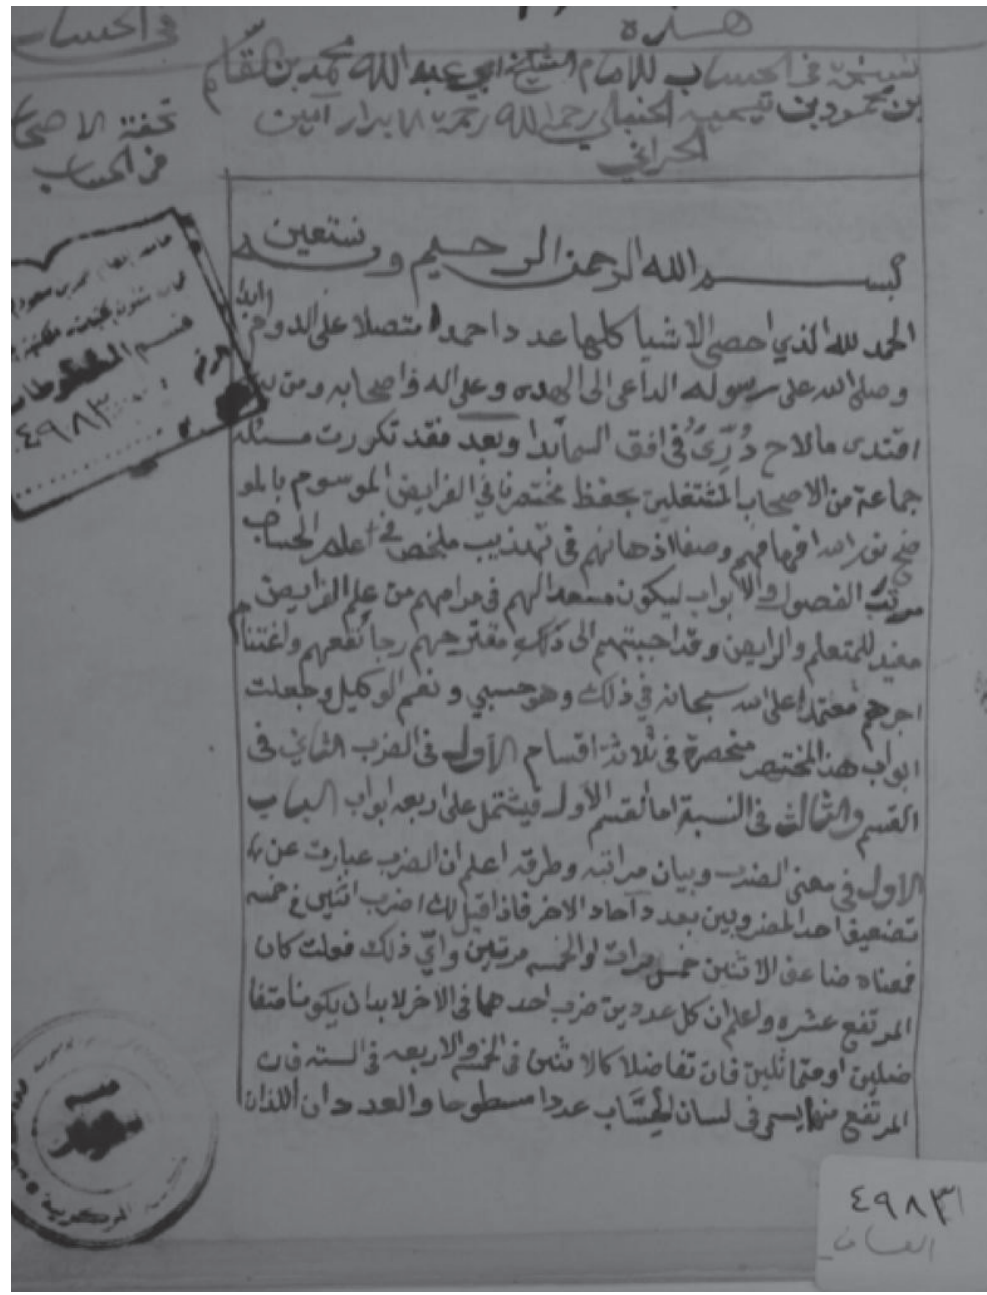 هذه
في الحساب
نسخة في الحساب للامام الشيخ ابي عبد الله محمد بن
بن محمود بن تيمية الحنبلي رحمه الله رحمة الابرار امين
الحراني
تحفة الاصحاب
في الحساب
بسم الله الرحمن الرحيم وبه نستعين
الحمد لله الذي احصى الاشيا كلها عددا حمدا متصلا على الدوام ابدا
وصلى الله على رسوله الداعي الى الهدى وعلى اله واصحابه ومن بهم
اقتدى ما لاح دُرِّيٌّ في افق السما بدا وبعد فقد تكررت مسئلة
جماعة من الاصحاب المشتغلين بحفظ مختصرنا في الفرايض الموسوم بالمو
ضح نور الله افهامهم وصفا اذهانهم في تهذيب ملخص في علم الحساب
مرتب الفصول والابواب ليكون مسعدا لهم في مرامهم من علم الفرايض
مفيد للمتعلم والرايض وقد اجبتهم الى ذلك مقترحهم رجا نفعهم واغتنام
اجرهم معتمدا على الله سبحانه في ذلك وهو حسبي ونعم الوكيل وجعلت
ابواب هذا المختصر منحصرة في ثلاثة اقسام الأول في الضرب الثاني في
القسم والثالث في النسبة اما القسم الأول فيشتمل على اربعه ابواب الباب
الأول في معنى الضرب وبيان مراتبه وطرقه اعلم ان الضرب عبارت عن
تضعيف احد المضروبين بعدد آحاد الاخر فاذا قيل لك اضرب اثنين في خمسه
فمعناه ضاعف الاثنين خمس مرات او الخمسه مرتين واي ذلك فعلت كان
المرتفع عشره واعلم ان كل عددين ضرب احدهما في الاخر لابد ان يكونا متفا
ضلين او متماثلين فان تفاضلا كالاثنين في الخمسه والاربعه في السته فان
المرتفع منهما يسمى في لسان الحُسَّاب عددا مسطوحا والعددان اللذان
قسم المخطوطات
الرقم
٤٩٨٣
المركزية
٤٩٨٣